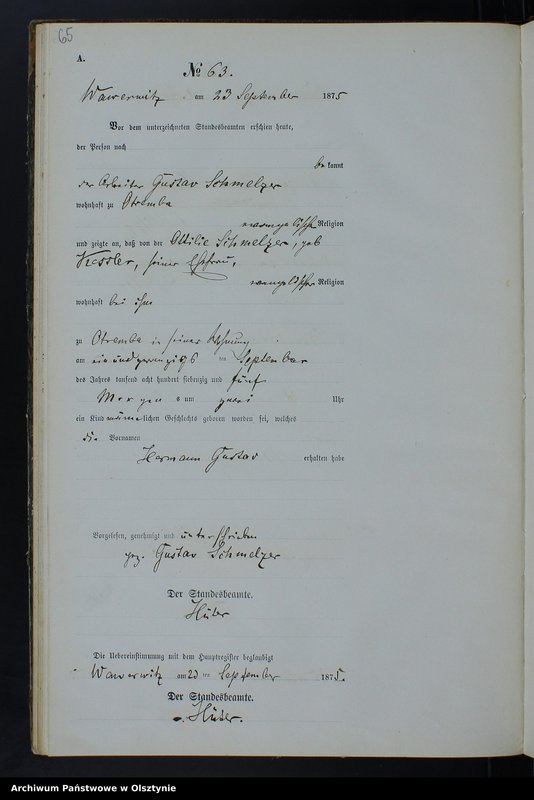 65
A.
№ 63.
Wawerwitz am 23 September 1875
Vor dem unterzeichneten Standesbeamten erschien heute,
der Person nach
be kannt
der Arbeiter Gustav Schmelzer
wohnhaft zu Otremba
evangelische Religion
und zeigte an, daß von der Ottilie Schmelzer, geb
Kessler, seiner Ehefrau,
evangelischer Religion
wohnhaft bei ihm
zu Otremba in seiner Wohnung
am ein und zwanzigs ten September
des Jahres tausend acht hundert siebenzig und fünf
Morgen s um zwei Uhr
ein Kind männlichen Geschlechts geboren worden sei, welches
die Vornamen
Hermann Gustav erhalten habe
Vorgelesen, genehmigt und unterschrieben
gez. Gustav Schmelzer
Der Standesbeamte.
Hüter
Die Uebereinstimmung mit dem Hauptregister beglaubigt
Wawerwitz am 23 ten September 1875.
Der Standesbeamte.
Hüter.
Archiwum Państwowe w Olsztynie